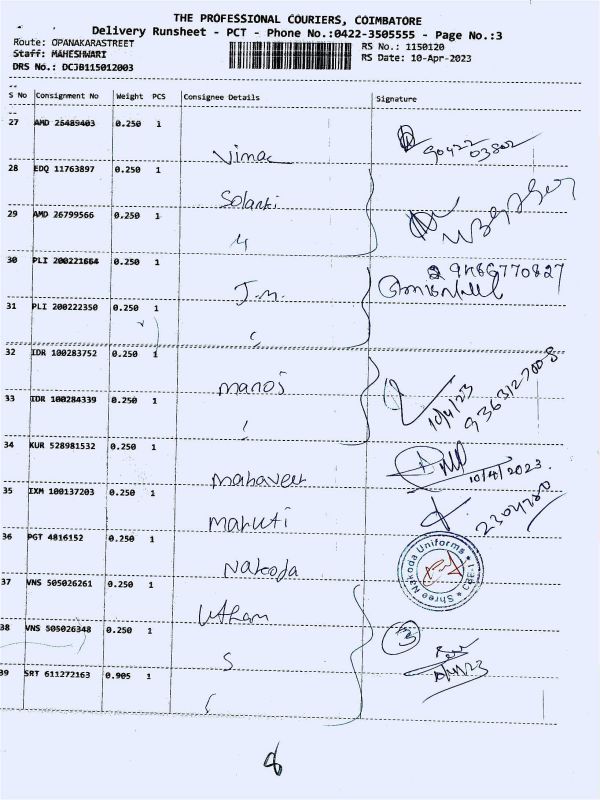 THE PROFESSIONAL COURIERS, COIMBATORE
Delivery Runsheet - PCT - Phone No.:0422-3505555 - Page No.:3
Route: OPANAKARASTREET
Staff: MAHESHWARI
DRS No.: DCJB115012003
RS No.: 1150120
RS Date: 10-Apr-2023
S No Consignment No Weight PCS Consignee Details Signature
27 AMD 26489403 0.250 1
Vimal 90422 03802
28 EDQ 11763897 0.250 1
Solanki
29 AMD 26799566 0.250 1
"
30 PLI 200221664 0.250 1
J.M. 9486770827
31 PLI 200222350 0.250 1
32 IDR 100283752 0.250 1
Manoj 10/4/23
33 IDR 100284339 0.250 1
34 KUR 528981532 0.250 1
Mahaveer 10/4/2023.
35 IXM 100137203 0.250 1
Maruti 2304780
36 PGT 4816152 0.250 1
Nakoda Shree Nakoda Uniforms * CBE-1 *
37 VNS 505026261 0.250 1
Utham
38 VNS 505026348 0.250 1
S 3
39 SRT 611272163 0.905 1
10/4/23
8